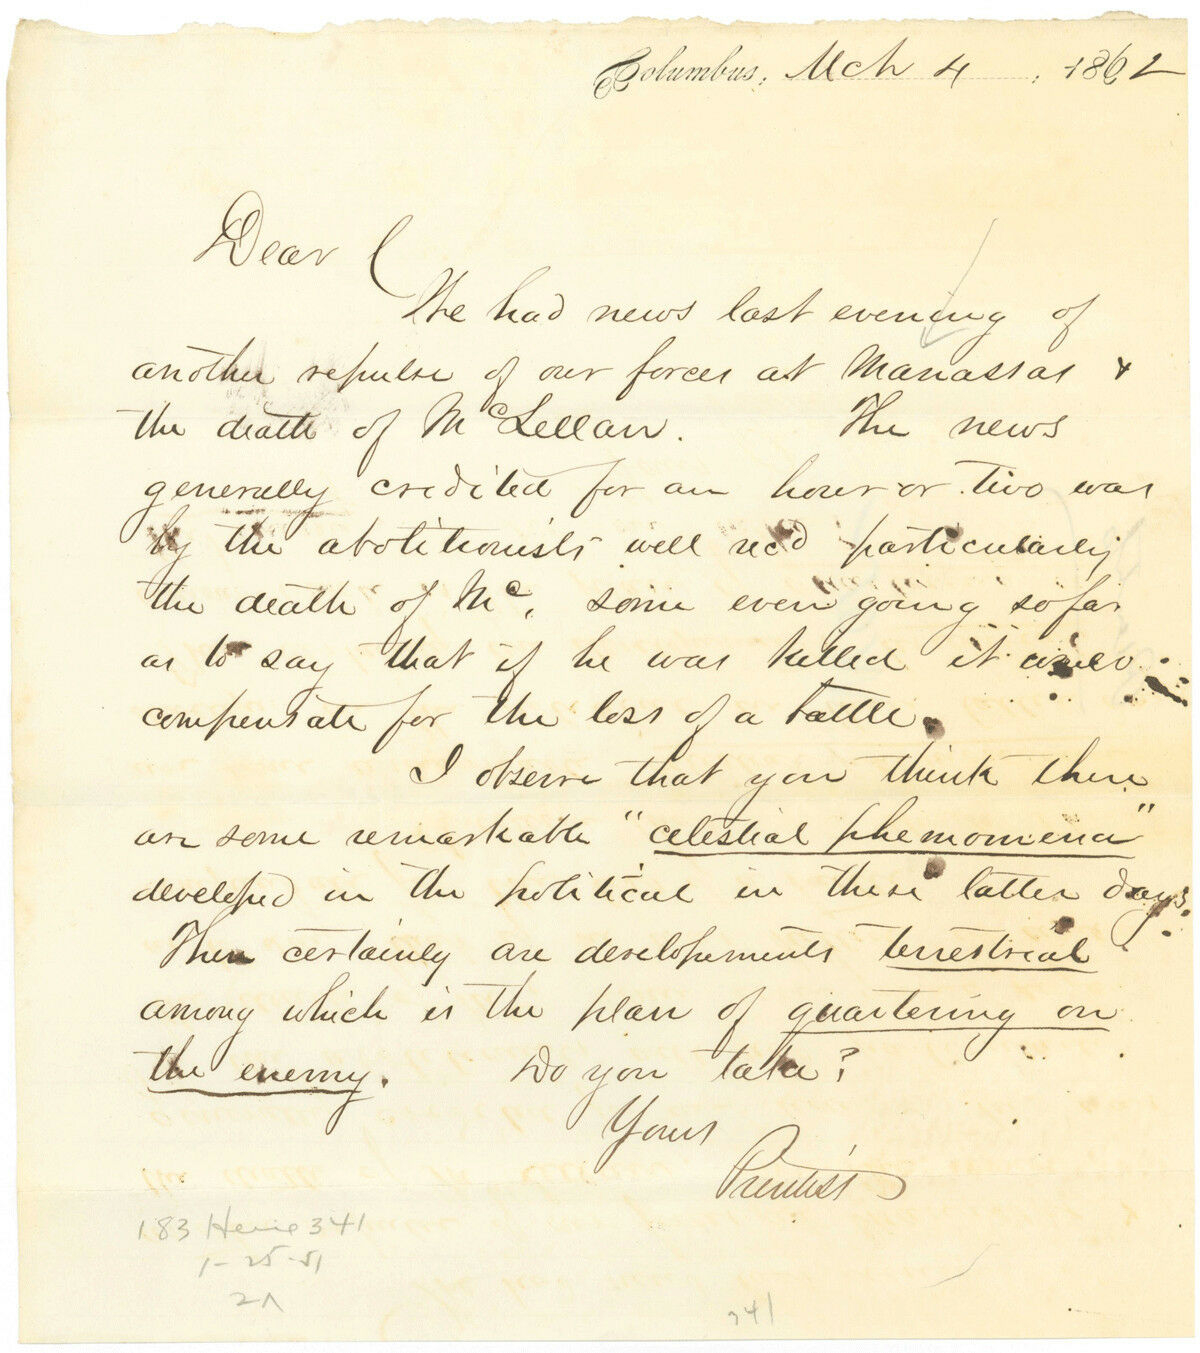 Columbus, Mch 4, 1862
Dear C
We had news last evening of
another repulse of our forces at Manassas &
the death of McLellan. The news
generally credited for an hour or two was
by the abolitionists well rec'd particularly
the death of Mc, some even going so far
as to say that if he was killed it would
compensate for the loss of a battle.
I observe that you think there
are some remarkable "celestial phenomena"
developed in the political in these latter days.
There certainly are developements terrestrial
among which is the plan of quartering on
the enemy. Do you take?
Yours
Prentiss
183 341
1-25-51
241